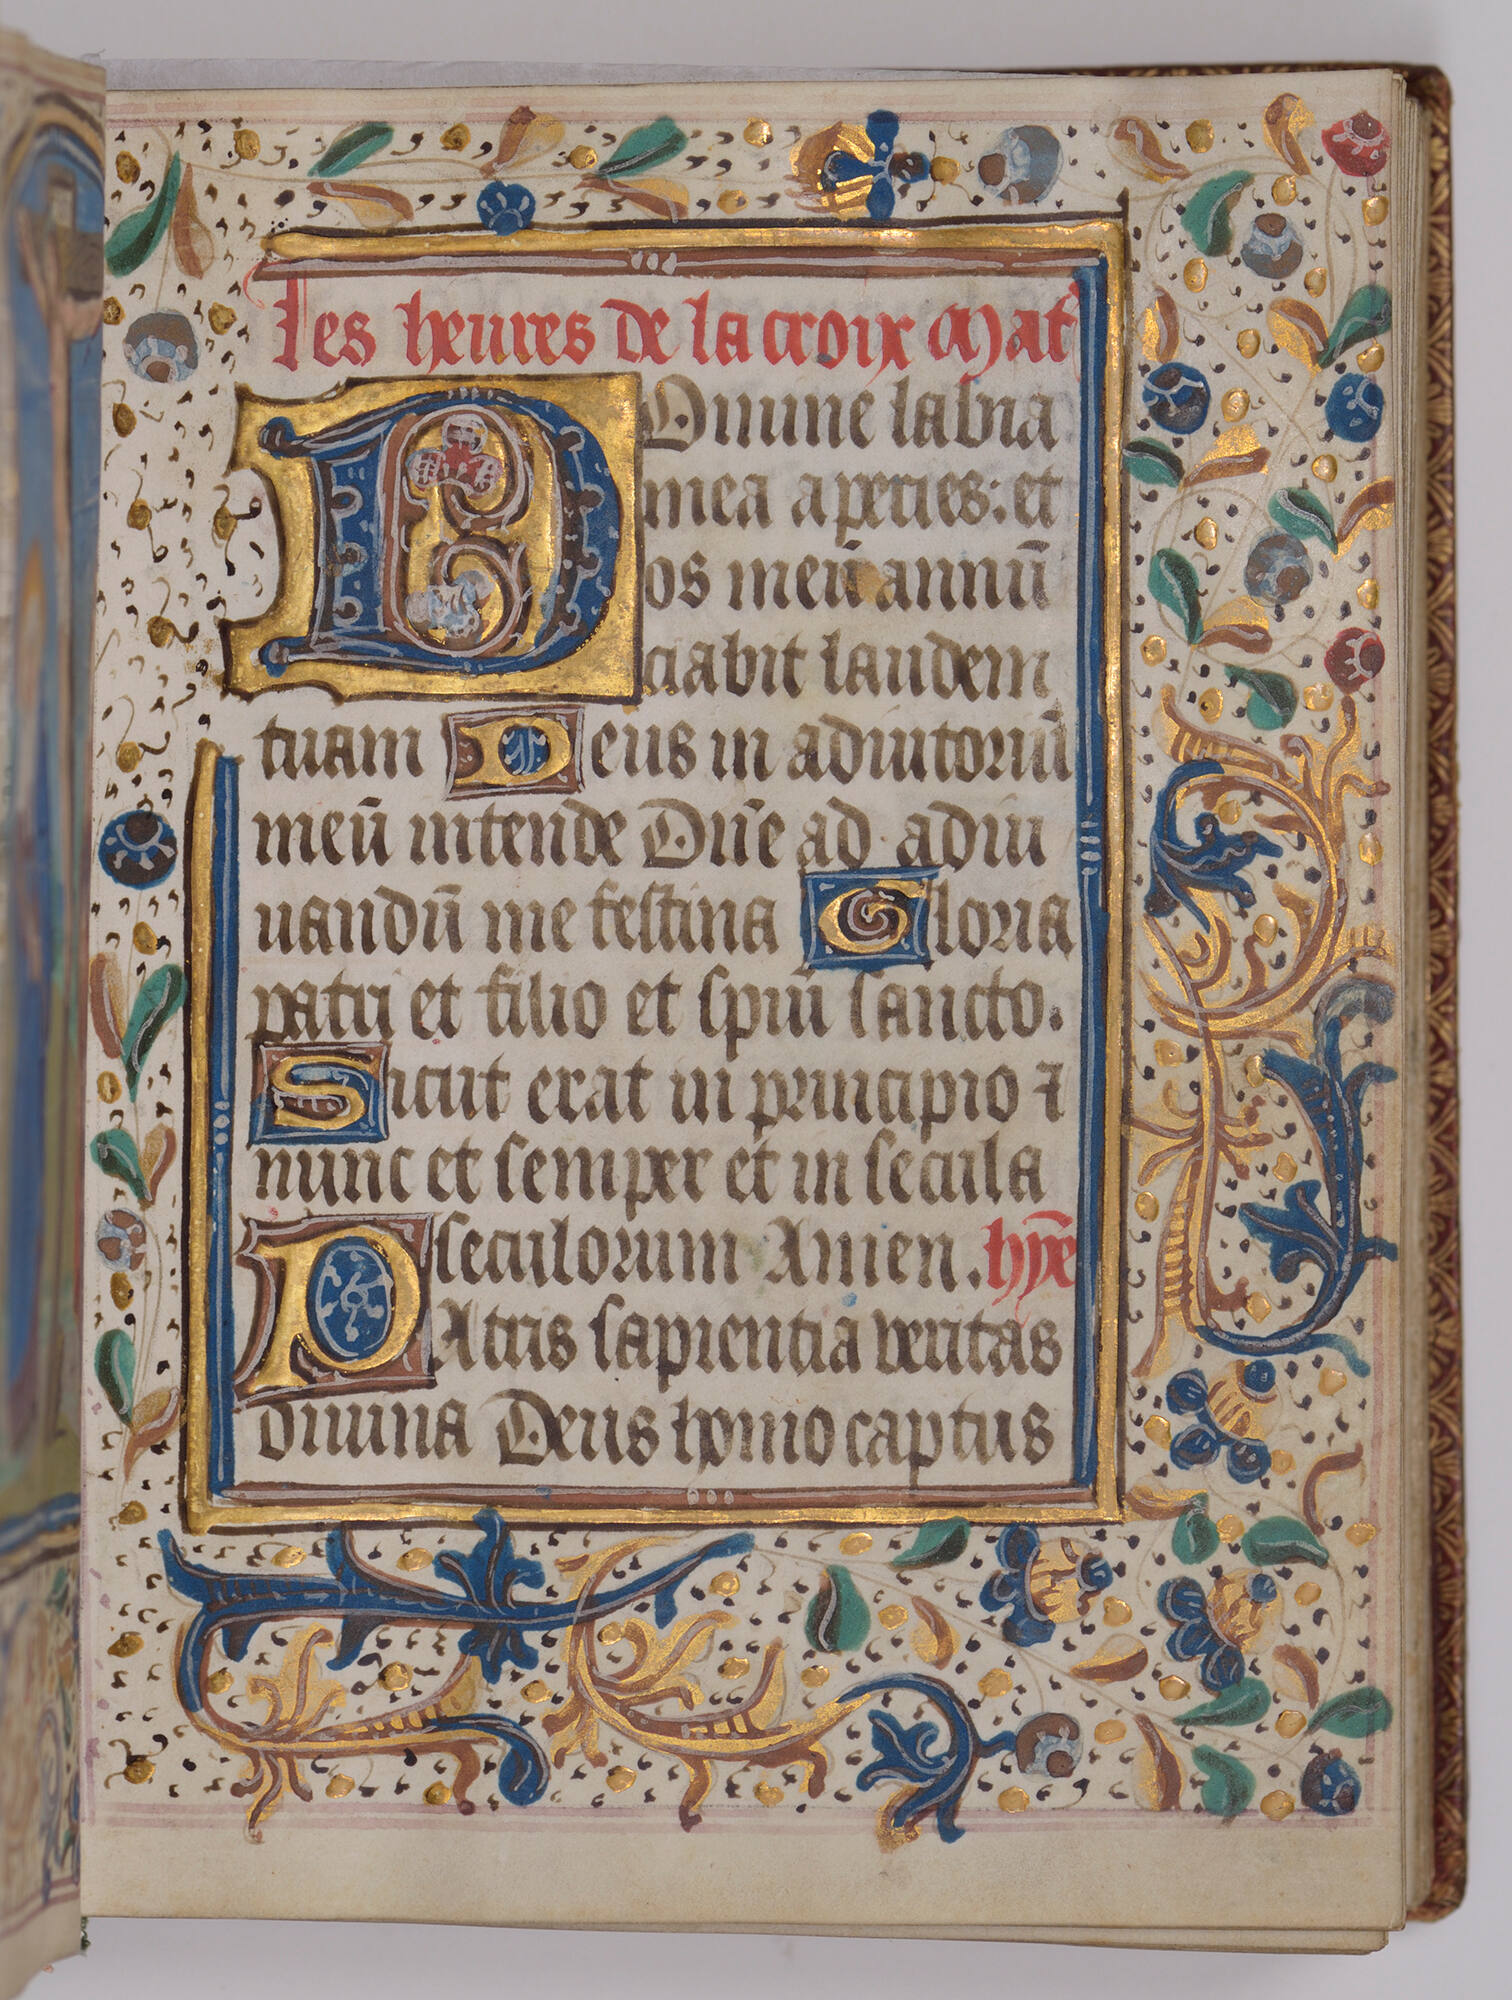 les heures de la croix Mat
Domine labia
mea aperies: et
os meū annū
ciabit laudem
tuam Deus in adiutoriū
meū intende Dn̄e ad adiu
uandū me festina Gloria
patri et filio et spiū sancto.
Sicut erat in principio ⁊
nunc et semper et in secula
seculorum Amen. hyē
PAtris sapientia veritas
diuina Deus homo captus